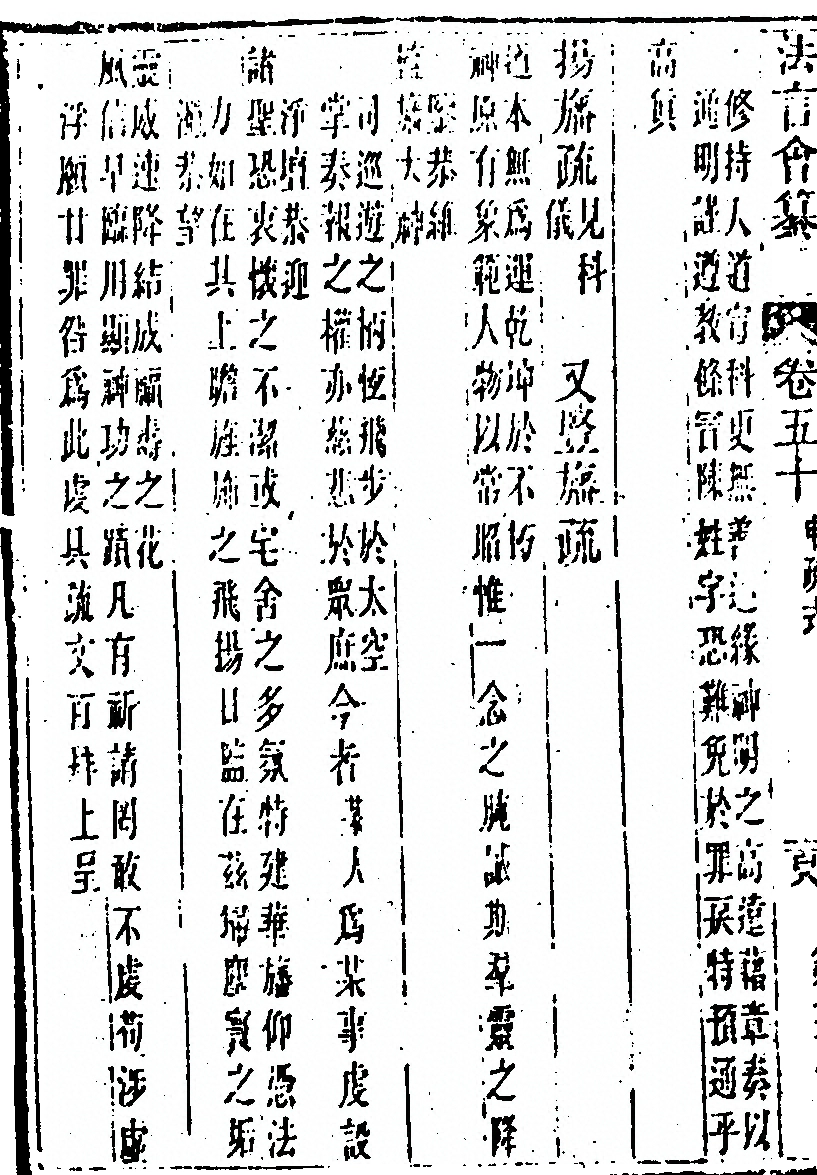 法言會纂 卷五十 申疏式 頁
修持人道官科更無善之緣神明之高遠藉章奏以
通明註遵教條冒陳姓字恐難免於罪戾特預通乎
高真
揚旛疏見科儀 又豎旛疏
道本無爲運乾坤於不朽
神原有象範人物以常昭惟一念之虔誠斯羣靈之降
鑒恭維
當境大神
司巡遊之柄恆飛步於太空
掌奏報之權亦慈悲於眾庶今者某人爲某事虔設
淨壇恭迎
諸聖恐衷懷之不潔或宅舍之多氛特建華旛仰憑法
力如在其上瞻旌旆之飛揚日監在茲掃塵氛之垢
濁恭望
靈威速降結成福壽之花
風信早臨用顯神功之蹟凡有祈請罔敢不虔荷涉虛
浮願甘罪咎爲此虔具疏文百拜上呈